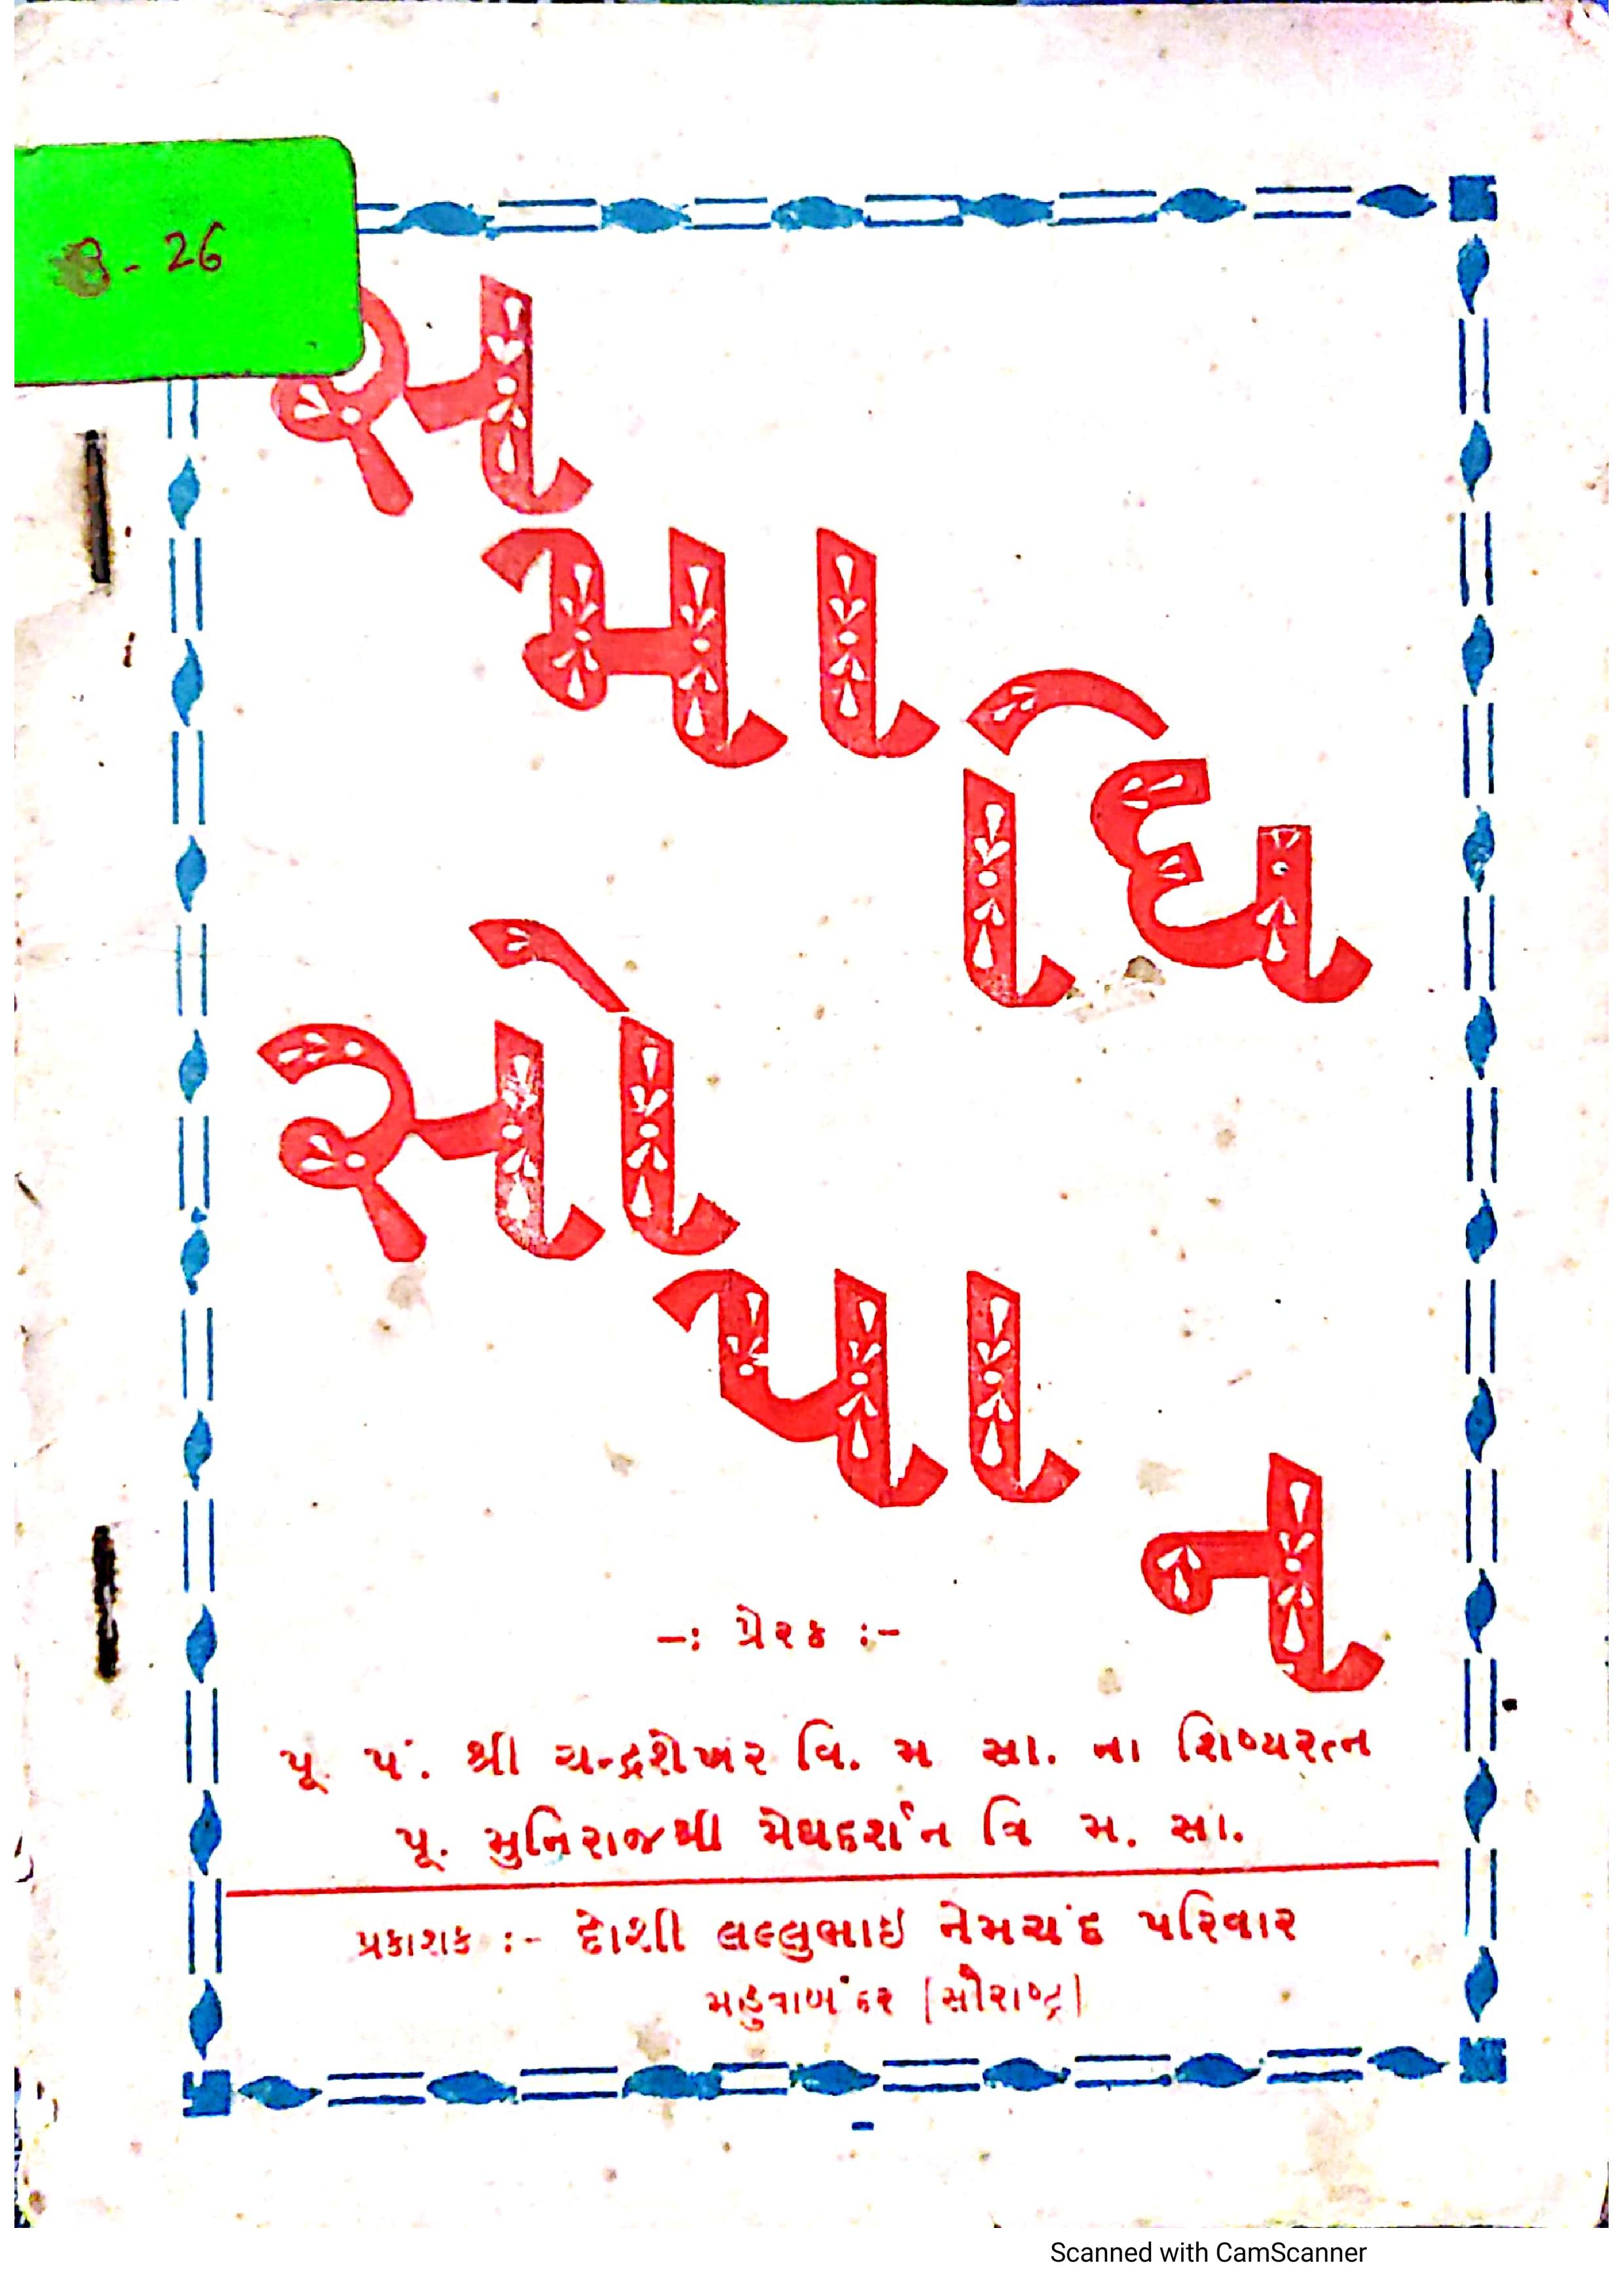 - 26
સ
મા
ધિ
સો
પા
ન
–: પ્રેરક :–
પૂ. પં. શ્રી ચન્દ્રશેખર વિ. મ સા. ના શિષ્યરત્ન
પૂ. મુનિરાજશ્રી મેઘદર્શન વિ મ. સા.
પ્રકાશક :- દોશી લલ્લુભાઇ નેમચંદ પરિવાર
મહુવાબંદર (સૌરાષ્ટ્ર)
Scanned with CamScanner